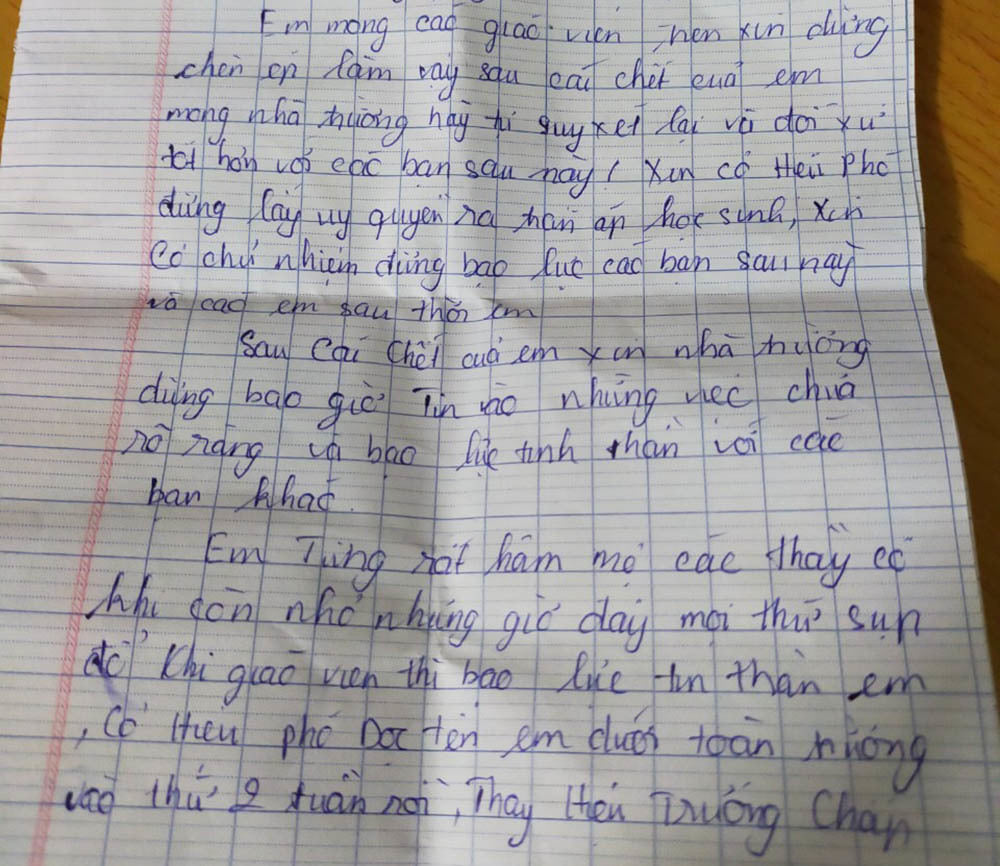 Em mong các giáo viên nên xin đừng
chèn ép lắm vậy sau cái chết của em
mong nhà trường hãy suy xét lại và đối xử
tốt hơn với các bạn sau này! Xin cô Hiệu Phó
đừng lấy uy quyền ra trấn áp học sinh, xin
Cô chủ nhiệm đừng bạo lực các bạn sau này
và các em sau thời em
Sau cái chết của em xin nhà trường
đừng bao giờ Tin vào những việc chưa
rõ ràng và bạo lực tinh thần với các
bạn khác.
Em Từng rất hâm mộ các thầy cô
khi còn nhỏ nhưng giờ đây mọi thứ sụp
đổ khi giáo viên thì bạo lực tin thần em
, Cô Hiệu phó Đọc tên em dưới toàn trường
vào thứ 2 tuần rồi, Thầy Hiệu Trưởng